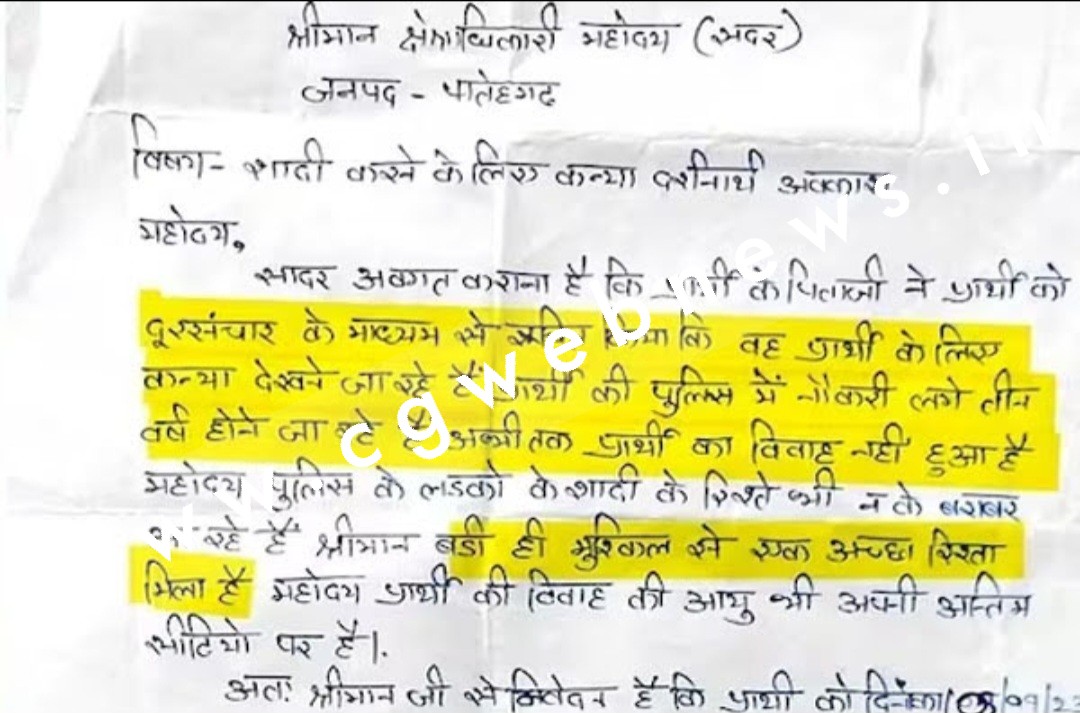 श्रीमान क्षेत्राधिकारी महोदय (सदर)
जनपद - फतेहगढ़
विषय - शादी करने के लिए कन्या दर्शनार्थ अवकाश
महोदय,
सादर अवगत कराना है कि प्रार्थी के पिताजी ने प्रार्थी को
दूरसंचार के माध्यम से सूचित किया कि वह प्रार्थी के लिए
कन्या देखने जा रहे हैं प्रार्थी की पुलिस में नौकरी लगे तीन
वर्ष होने जा रहे हैं अभी तक प्रार्थी का विवाह नहीं हुआ है
महोदय पुलिस के लडको के शादी के रिश्ते भी न के बराबर
आ रहे हैं श्रीमान बडी ही मुश्किल से एक अच्छा रिश्ता
मिला है महोदय प्रार्थी की विवाह की आयु भी अपनी अन्तिम
सीढियो पर है।
अतः श्रीमान जी से निवेदन है कि प्रार्थी को दिनांक
www.cgwebnews.in